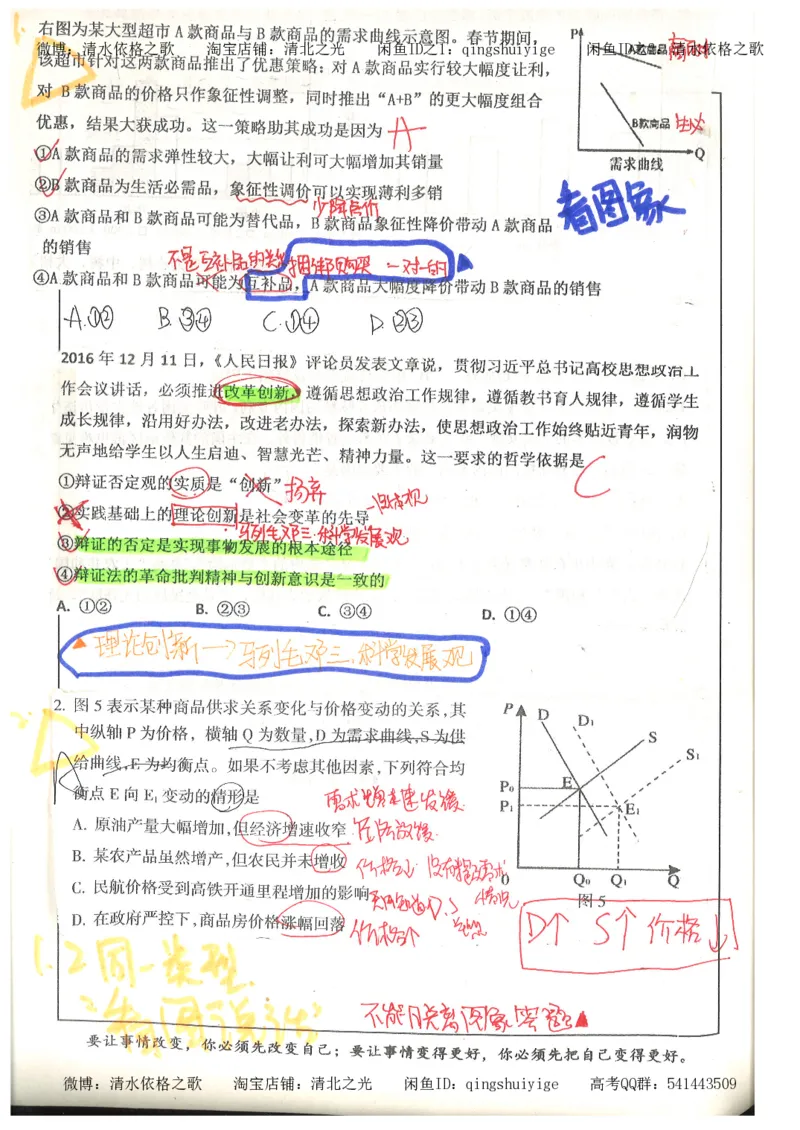 右图为某大型超市 A 款商品与 B 款商品的需求曲线示意图。春节期间,
微博:清水依格之歌 淘宝店铺:清北之光 闲鱼ID之1:qingshuiyige 闲鱼ID 清水依格之歌
该超市针对这两款商品推出了优惠策略:对 A 款商品实行较大幅度让利,
对 B 款商品的价格只作象征性调整,同时推出“A+B”的更大幅度组合
优惠,结果大获成功。这一策略助其成功是因为 A
P
A款商品
B款商品 生必
Q
需求曲线
①A 款商品的需求弹性较大,大幅让利可大幅增加其销量
②B 款商品为生活必需品,象征性调价可以实现薄利多销
少降点价
看图象
③A 款商品和 B 款商品可能为替代品,B 款商品象征性降价带动 A 款商品
的销售
不是互补品的关系 捆绑购买 一对一的
④A 款商品和 B 款商品可能为互补品,A 款商品大幅度降价带动 B 款商品的销售
A.①② B.③④ C.①④ D.②③
2016 年 12 月 11 日,《人民日报》评论员发表文章说,贯彻习近平总书记高校思想政治工
作会议讲话,必须推进改革创新,遵循思想政治工作规律,遵循教书育人规律,遵循学生
成长规律,沿用好办法,改进老办法,探索新办法,使思想政治工作始终贴近青年,润物
无声地给学生以人生启迪、智慧光芒、精神力量。这一要求的哲学依据是 C
①辩证否定观的实质是“创新” 扬弃
②实践基础上的理论创新是社会变革的先导
马列毛邓三.科学发展观
③辩证的否定是实现事物发展的根本途径
④辩证法的革命批判精神与创新意识是一致的
A. ①② B. ②③ C. ③④ D. ①④
▲理论创新→马列毛邓三.科学发展观
2. 图 5 表示某种商品供求关系变化与价格变动的关系,其
中纵轴 P 为价格,横轴 Q 为数量,D 为需求曲线,S 为供
给曲线,E 为均衡点。如果不考虑其他因素,下列符合均
衡点 E 向 E₁ 变动的情形是
A
需求增速放缓
A. 原油产量大幅增加,但经济增速收窄
B. 某农产品虽然增产,但农民并未增收
价格↓ 没有提及需求情况
C. 民航价格受到高铁开通里程增加的影响
D. 在政府严控下,商品房价格涨幅回落
价格个
P D D₁ S S₁
P₀ E
P₁ E₁
0 Q₀ Q₁ Q
图 5
D↑ S↑ 价格↓
1.2同一类型
不能脱离图象答题▲
要让事情改变,你必须先改变自己;要让事情变得更好,你必须先把自己变得更好。
微博:清水依格之歌 淘宝店铺:清北之光 闲鱼ID:qingshuiyige 高考QQ群:541443509